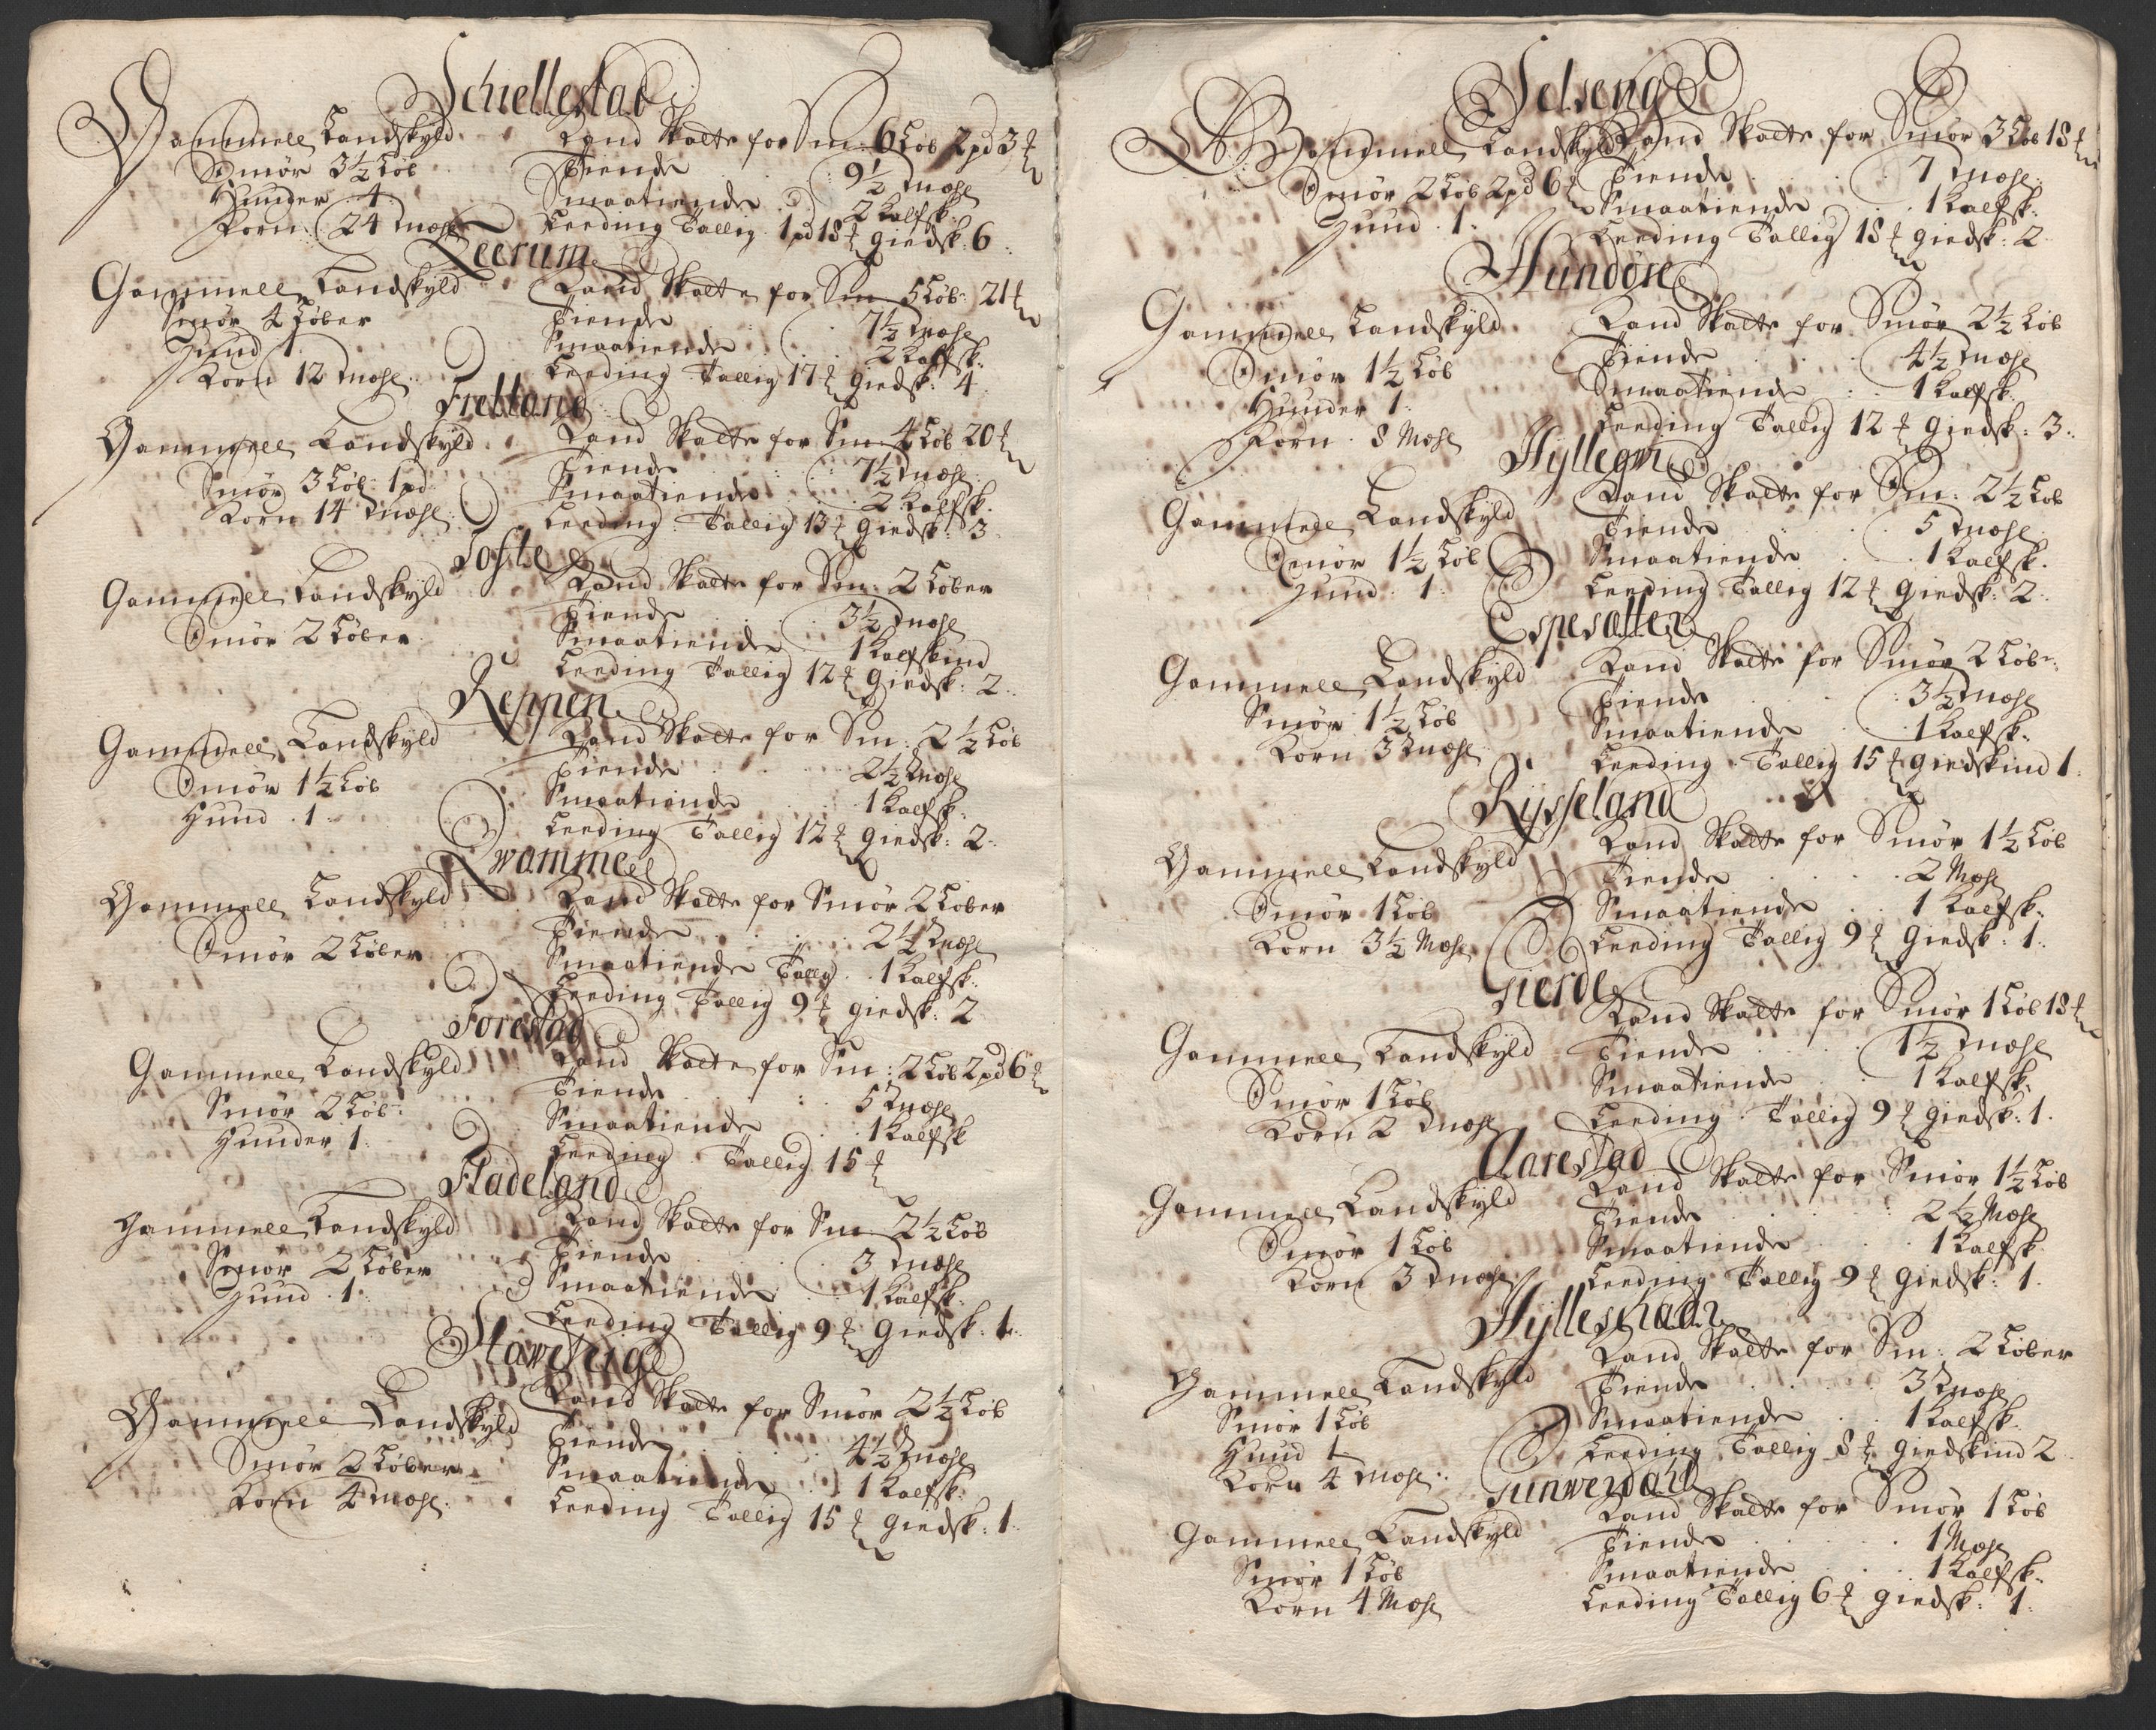 Schiellestad
Gammell Landskyld
Smør 3½ Løb
Hunder 4
Korn 24 Mæhl
Land Skatte for Sm: 6 Løb 2 pd 3 ℔
Tiende 9½ Mæhl
Smaatiende 2 Kalfsk:
Leeding Tallig 1 pd 18 ℔ giedsk: 6
Leerum
Gammell Landskyld
Smør 4 Løber
Hund 1
Korn 12 Mæhl
Land Skatte for Sm 5 Løb: 21 ℔
Tiende 7½ Mæhl
Smaatiende 2 Kalfsk:
Leeding Tallig 17 ℔ giedsk: 4
Fretland
Gammell Landskyld
Smør 3 Løb: 1 pd
Korn 14 Mæhl
Land Skatte for Sm 4 Løb 20 ℔
Tiende 7½ Mæhl
Smaatiende 2 Kalfsk.
Leeding Tallig 13 ℔ giedsk: 3
Tofte
Gammell Landskyld
Smør 2 Løber
Land Skatte for Sm: 2 Løber
Tiende 3½ Mæhl
Smaatiende 1 Kalfskind
Leeding Tallig 12 ℔ giedsk: 2
Reppen
Gammell Landskyld
Smør 1½ Løb
Hund 1
Land Skatte for Sm: 2½ Løb
Tiende 2½ Mæhl
Smaatiende 1 Kalfsk:
Leeding Tallig 12 ℔ giedsk: 2
Qwamme
Gammell Landskyld
Smør 2 Løber
Land Skatte for Smør 2 Løber
Tiende 2½ Mæhl
Smaatiende Tallig 1 Kalfsk:
Leeding Tallig 9 ℔ giedsk: 2
Forestad
Gammell Landskyld
Smør 2 Løb:
Hunder 1
Land Skatte for Sm: 2 Løb 2 pd 6 ℔
Tiende 5 Mæhl
Smaatiende 1 Kalfsk
Leeding Tallig 15 ℔
Fladeland
Gammell Landskyld
Smør 2 Løber
Hund 1
Land Skatte for Sm 2½ Løb
Tiende 3 Mæhl
Smaatiende 1 Kalfsk:
Leeding Tallig 9 ℔ Giedsk: 1
Stawseng
Gammell Landskyld
Smør 2 Løber
Korn 4 Mæhl
Land Skatte for Smør 2½ Løb
Tiende 4½ Mæhl
Smaatiende 1 Kalfsk:
Leeding Tallig 15 ℔ giedsk: 1
Selseng
Gammell Landskyld
Smør 2 Løb 2 pd 6 ℔
Hund 1
Land Skatte for Smør 3 Løb 18 ℔
Tiende 7 Mæhl
Smaatiende 1 Kalfsk:
Leeding Tallig 18 ℔ giedsk: 2
Hundøre
Gammell Landskyld
Smør 1½ Løb
Hunder 1
Korn 8 Mæhl
Land Skatte for Smør 2½ Løb
Tiende 4½ Mæhl
Smaatiende 1 Kalfsk.
Leeding Tallig 12 ℔ Giedsk: 3
Gammell Landskyld
Smør 1½ Løb
Hund 1
Land Skatte for Sm: 2½ Løb
Tiende 5 Mæhl
Smaatiende 1 Kalfsk.
Leeding Tallig 12 ℔ giedsk: 2
Espesætter
Gammell Landskyld
Smør 1½ Løb
Korn 3 Mæhl
Land Skatte for Smør 2 Løb:
Tiende 3½ Mæhl
Smaatiende 1 Kalfsk:
Leeding Tallig 15 ℔ giedskind 1
Rysseland
Gammell Landskyld
Smør 1 Løb
Korn 3½ Mæhl
Land Skatte for Smør 1½ Løb
Tiende 2 Mæhl
Smaatiende 1 Kalfsk:
Leeding Tallig 9 ℔ Giedsk: 1
Gierde
Gammell Landskyld
Smør 1 Løb
Korn 2 Mæhl
Land Skatte for Smør 1 Løb 18 ℔
Tiende 1½ Mæhl
Smaatiende 1 Kalfsk:
Leeding Tallig 9 ℔ giedsk: 1
Aarestad
Gammell Landskyld
Smør 1 Løb
Korn 3 Mæhl
Land Skatte for Smør 1½ Løb
Tiende 2½ Mæhl
Smaatiende 1 Kalfsk
Leeding Tallig 9 ℔ Giedsk: 1
Gammell Landskyld
Smør 1 Løb
Hund 1
Korn 4 Mæhl
Land Skatte for Sm: 2 Løber
Tiende 3 Mæhl
Smaatiende 1 Kalfsk.
Leeding Tallig 8 ℔ Giedskind 2
Gammell Landskyld
Smør 1 Løb
Korn 4 Mæhl
Land Skatte for Smør 1 Løb
Tiende 1 Mæhl
Smaatiende 1 Kalfsk:
Leeding Tallig 6 ℔ giedsk: 1